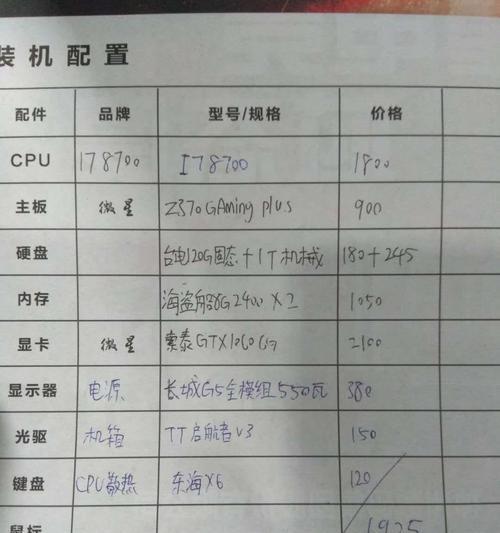 装机配置
配件 品牌 型号/规格 价格
CPU I78700 I78700 1800
主板 微星 Z370GAming plus 900
硬盘 台电120G固态+1T机械 180+245
内存 海盗船8G2400X2 1050
显卡 微星 索泰GTX1060 6G 2100
显示器 电源 长城G5全模组550瓦 380
光驱 机箱 TT启航者v3 150
键盘 CPU散热 东海X6 120
鼠标 1925